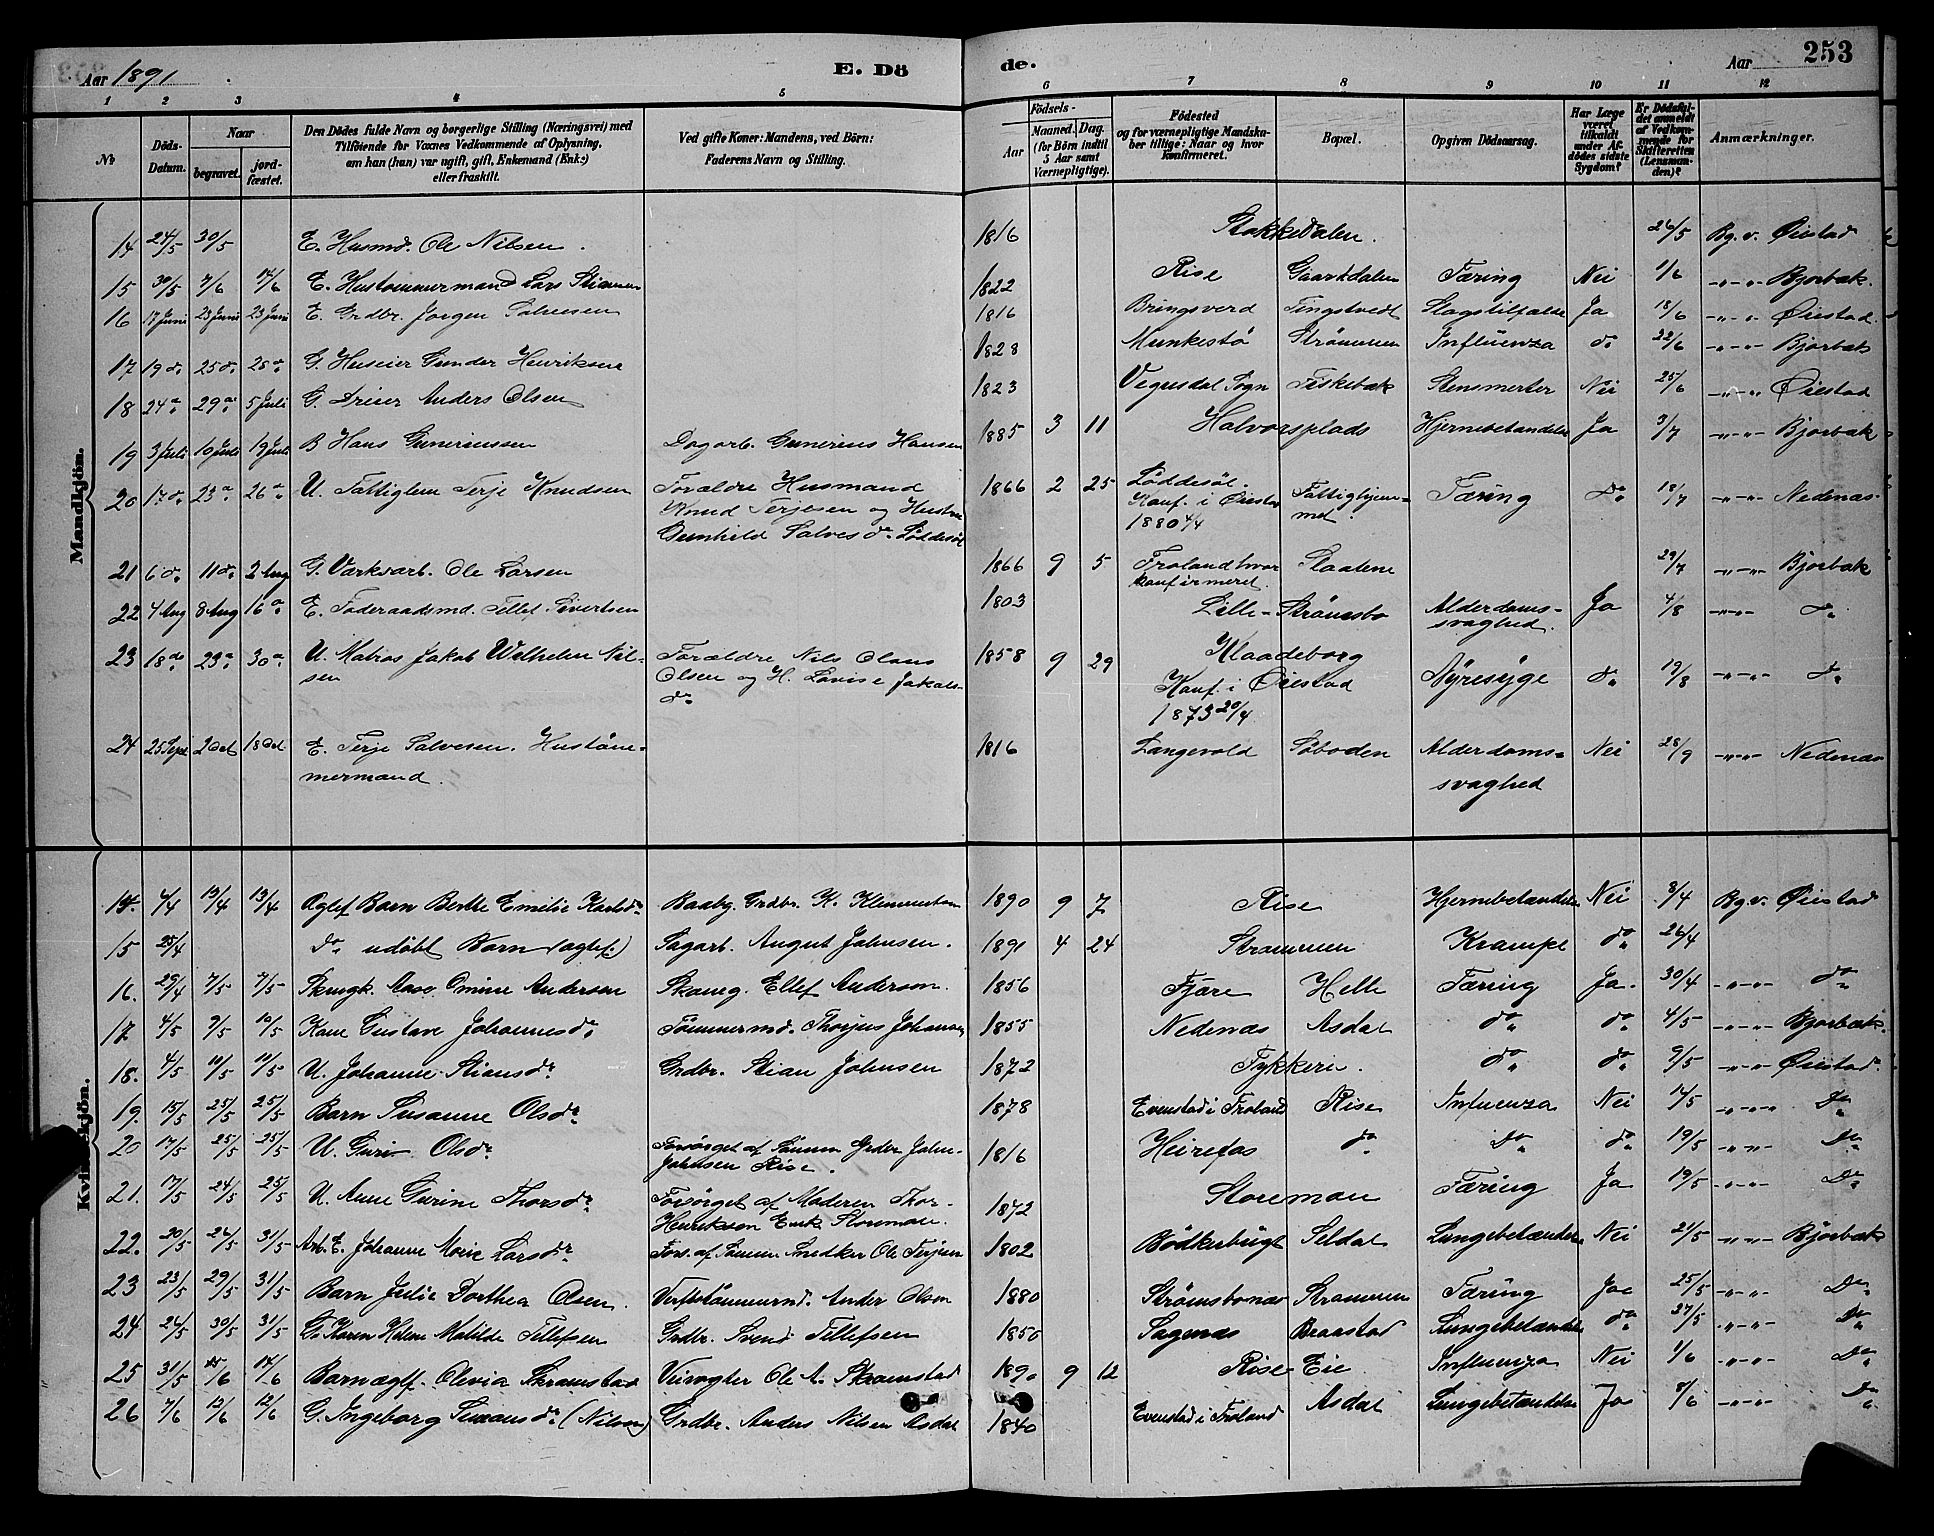 Aar 1891
E. Dö
de.
Aar
253
1 2 3 4 5 6 7 8 9 10 11 12
No
Döds-Datum.
Naar
begravet.
jord-fæstet.
Den Dödes fulde Navn og borgerlige Stilling (Næringsvei) med
Tilföiende for Voxnes Vedkommende af Oplysning,
om han (hun) var ugift, gift, Enkemand (Enke)
eller fraskilt.
Ved gifte Koner: Mandens, ved Börn:
Faderens Navn og Stilling.
Födsels-
Aar
Maaned. Dag.
(for Börn indtil
5 Aar samt
Værnepligtige).
Födested
og for værnepligtige Mandska-
ber tillige: Naar og hvor
konfirmeret.
Bopæl.
Opgiven Dödsaarsag.
Har Læge
været
tilkaldt
under Af-
dödes sidste
Sygdom?
Er Dödsfal-
det anmeldt
af Vedkom-
mende for
Skifteretten
(Lensman-
den)?
Anmærkninger.
Mandkjön.
14 24/5 30/5 E. Husmd. Ole Nilsen. 1816 Stokkedalen. 26/5 Bg. v. Øiestad
15 30/5 7/6 14/6 E. Hustømmermand Lars 1822 Rise Færing Nei 1/6 -"-"- Bjorbæk.
16 17 Juni 23 Juni 23 Juni E. Grdbr. Jørgen Salvesen 1816 Bringsverd Tingstvedt Slagstilfælde Ja 18/6 -"-"- Øiestad.
17 19 do 25 do 28 do G. Huseier Gunder Henriksen 1828 Munkestø Strømmen Influenza do 22/6 -"-"- Bjorbæk
18 24 do 29 do 5 Juli G. Anders Olsen 1823 Vegusdal Sogn Fiskebæk Stensmerter Nei 25/6 -"-"- Øiestad
19 3 Juli 10 Juli 19 Juli B Hans Gunerieussen Dagarb. Gunerius Hansen 1885 3 11 Halvorsplads Hjernebetændelse Ja 3/7 -"-"- Bjorbæk
20 17 do 23 do 26 do U. Fattiglem Terje Knudsen Forældre Husmand 1866 2 25 Løddesøl. Fattighjem- Færing Do 18/7 -"-"- Nedenæs-
Knud Terjesen og Hustru Konf. i Øiestad met.
Gunhild Salvesdr Løddesøl 1880 4/4
21 6 do 11 do 2 Aug G. Værkarb. Ole Larsen 1866 9 5 Froland hvor Staalene 29/7 -"-"- Bjorbæk
konfirmeret.
22 4 Aug 8 Aug 16 do E. Føderaadsmd. Tellef Sivertsen 1803 Lille-Strømsbo Alderdoms- Ja 4/8 -"-"- do
svaghed.
23 18 do 23 do 30 do U. Matros Jakob Wilhelm Nil- Forældre Nils Olaus 1858 9 29 Klaadeborg Nyresyge do 19/8 -"-"- do
sen Olsen og H. Lovise Jakobs- Konf. i Øiestad
dr 1873 20/4
24 25 Sept 2 Oct 18 Oct E. Terje Salvesen. Hustøm- 1816 Langevold Søboden Alderdoms- Nei 28/9 -"-"- Nedenæs
mermand. svaghed
Kvindekjön.
14. 4/4 13/4 13/4 Ægtef Barn Berthe Emilie Karlsdr Baabg. Grdbr. K. 1890 9 7 Rise Hjernebetændelse Nei 8/4 Bg. v. Øiestad
15 25/4 do udøbt Barn (ægtef.) Sagarb. August Johnsen. 1891 4 24 Strømmen Krampe do 26/4
16. 29/4 7/5 7/5 Aase Omine Andersen Ellef Anderson. 1856 Fjære Helle Færing Ja. 30/4 -"-"- do
17 4/5 9/5 10/5 Kone Gustave Johannesdr Tømmermd. Thorjus Johansen 1855 Nedenæs Asdal do do 4/5 -"-"- Bjorbæk.
18. 4/5 10/5 10/5 U. Johanne Stiansdr Grdbr. Stian Johnsen 1872 Fykkeri. do do 9/5 -"-"- Øiestad.
19. 15/5 25/5 25/5 Barn Susanne Olsdr 1878 Evenstad i Froland Rise Influenza Nei 17/5 -"-"- Do
20 17/5 25/5 25/5 U. Guri Olsdr Forsørget af Sønnen Grdbr John 1816 Heirefos do Do do 19/5 -"-"- Do
Johnsen Rise.
21. 17/5 24/5 25/5 U. Anne Gurine Thorsdr Forsørget af Moderen Thor 1872 Storemoen Færing Ja 19/5 -"-"- Do
Henriksen Enk Storemoen.
22. 20/5 24/5 31/5 E. Johanne Marie Larsdr Fors. af Sønnen Snedker Ole Terjesen 1802 Bødkerbugt Seldal Lungebetændelse Nei 21/5 -"-"- Bjorbæk
23 23/5 29/5 31/5 Barn Julie Dorthea Olsen. Verftstømmermd. Anders Olsen 1880 Strømsbonæs Strømmen Færing Ja 25/5 Do
24 26/5 30/5 31/5 G. Karen Helene Matilde Tellefsen Grdbr. Svend Tellefsen 1850 Sagenæs Braastad Lungebetændelse do 27/5 -"-"- Do
25 31/5 15/6 14/6 Barn ægtf. Olevia Skromstad Veivogter Ole A. Skromstad 1890 9 12 Rise Eie Influenza Nei 1/6 -"-"- Do
26 7/6 12/6 12/6 G. Ingeborg Simonsdr (Nilsen) Grdbr. Anders Nilsen Asdal 1840 Evenstad i Froland Asdal Lungebetændelse Ja 8/6 -"-"- Do